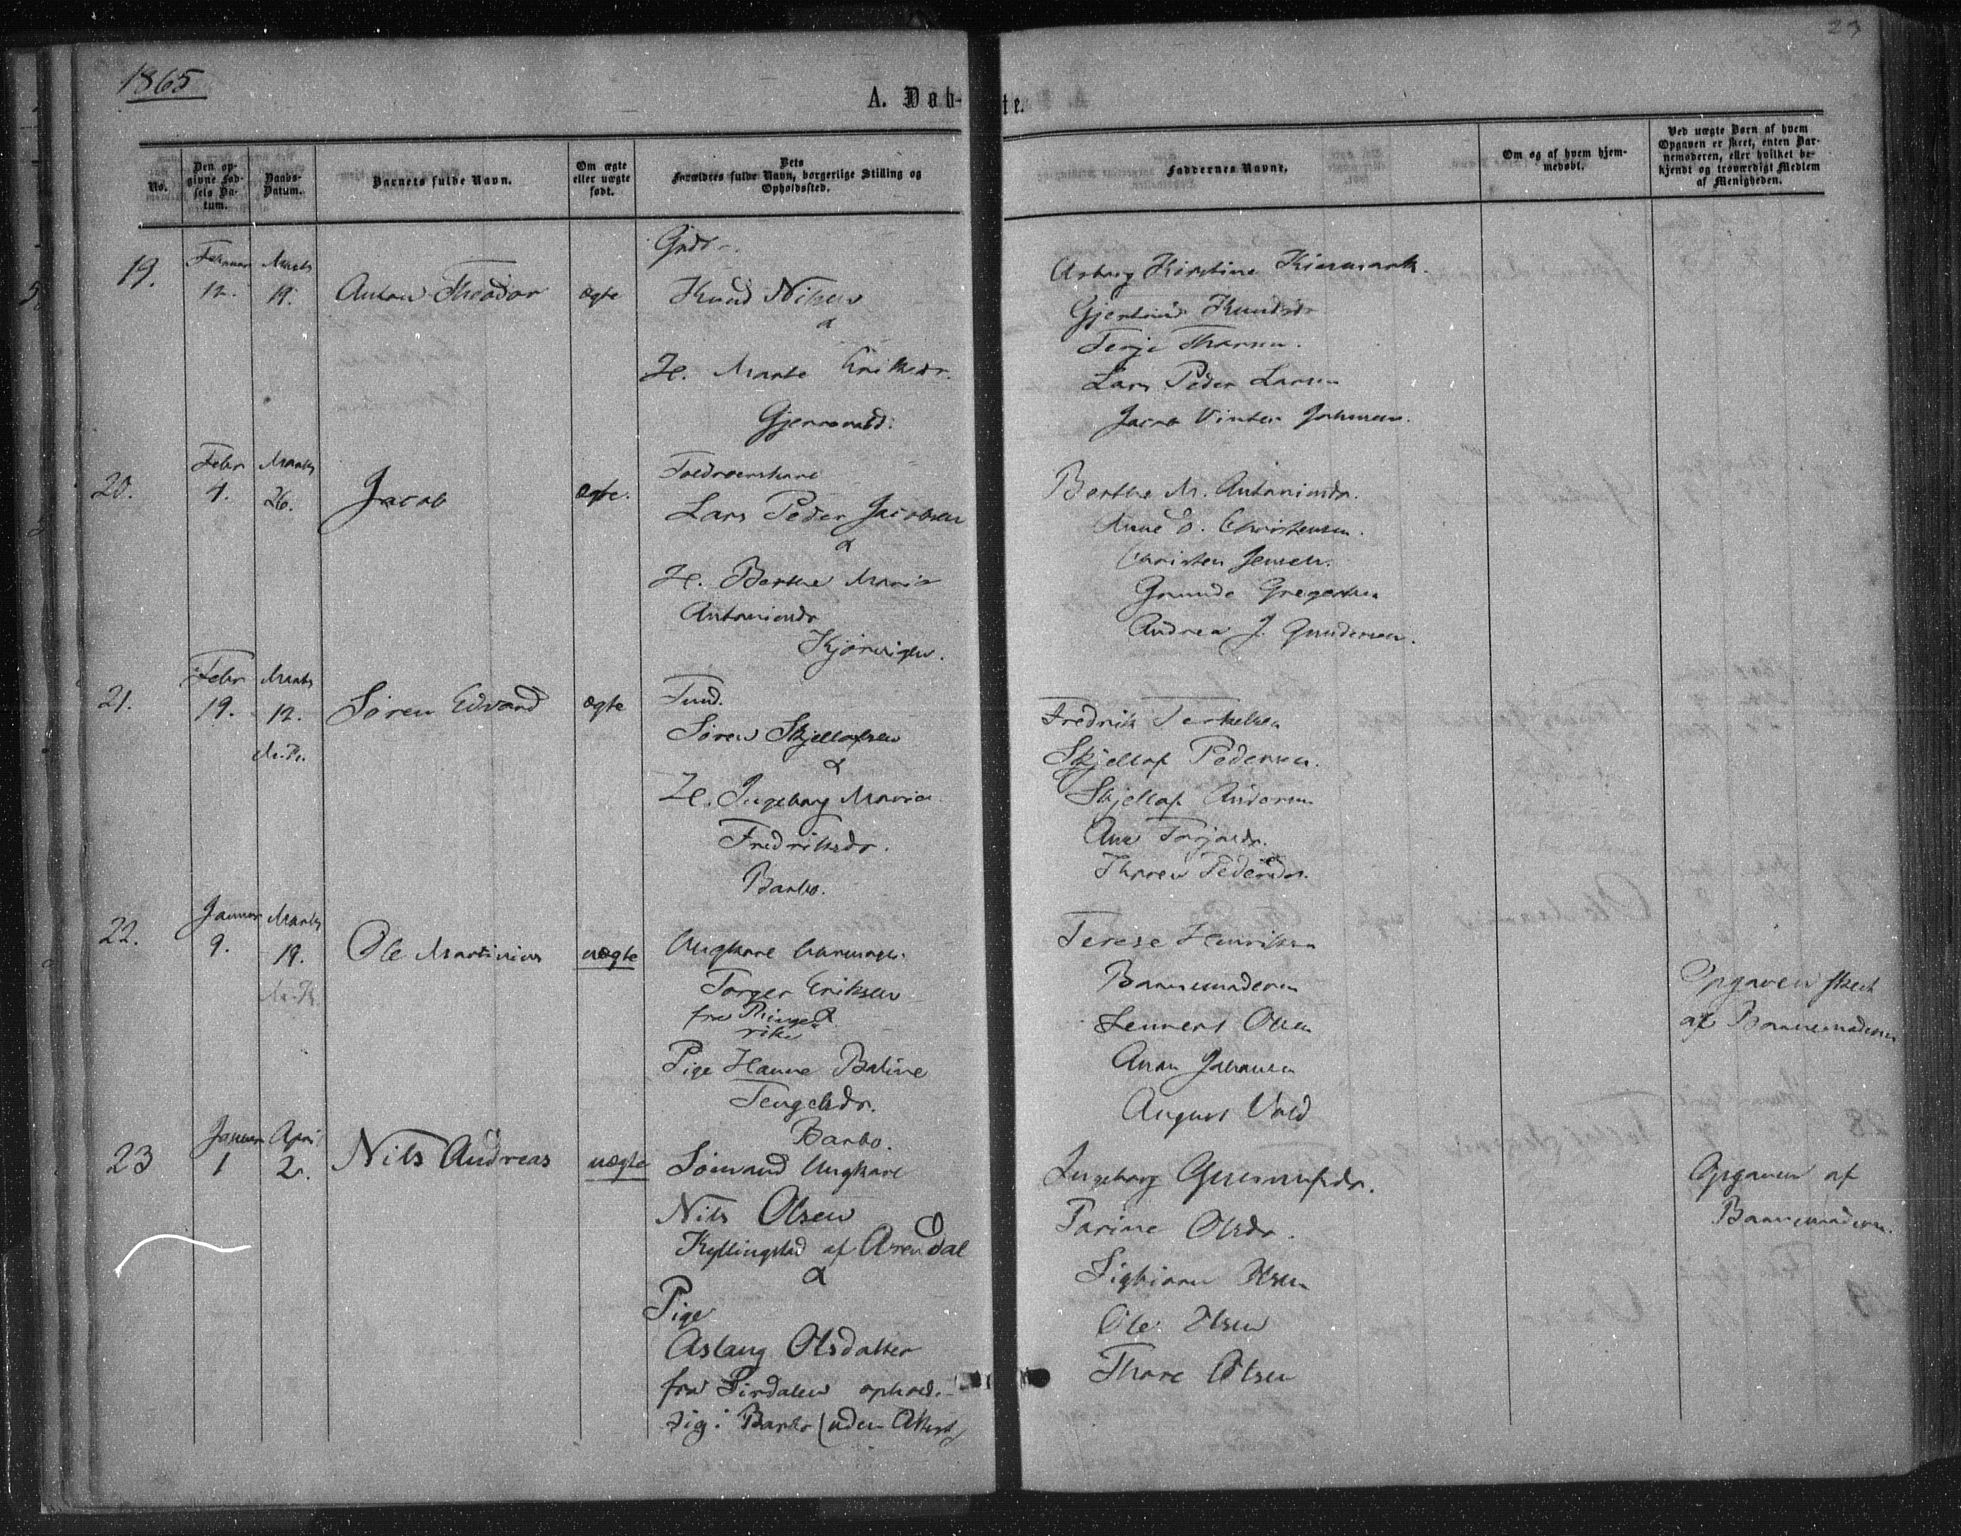 1865
23
A. Døb-
te.
No.
Den opgivne Fødsels Datum.
Daabs-Datum.
Barnets fulde Navn.
Om ægte eller uægte født.
Dets Forældres fulde Navn, borgerlige Stilling og Opholdssted.
Faddernes Navne.
Om og af hvem hjemmedøbt.
Ved uægte Børn af hvem Opgaven er skeet, enten Barnemoderen, eller hvilket bekjendt og troværdigt Medlem af Menigheden.
19.
Februar
12.
Marts
19.
Anton Theodor
ægte
Knud Nilsen
&
H. Marte Eriksdr.
Gjertrud Knudsdr
Terje
Lars Peder Larsen
Jacob
20.
Febr
4.
Marts
26.
Jacob
ægte.
Lars Peder Jacobsen
&
H. Berthe Maria
Antonisdr
Berthe M. Antonisdr.
Anne E. Christensen.
Christen Jensen.
Gregersen
Andrea J. Gundersen.
21.
Febr
19.
Marts
12.
Søren Edvard
ægte
Søren Skjellofsen
&
H. Ingeborg Maria
Fredriksdr.
Barbo.
Fredrik Terkelsen
Skjellof Pedersen.
Skjellof Andersen
Ane
Pedersdr.
22.
Januar
9.
Marts
19.
Ole Martinius
uægte
Ungkarl
Torger Eriksen
fra Ringe
rike
&
Pige Hanne
Barbo.
Terese Henriksen
Barnemoderen
Lennert Olsen
Johansen
August
Opgaven skeet
af Barnemoderen
23
Januar
1
April
2.
Nils Andreas
uægte
Sømand Ungkarl
Nils Olsen
Kyllingstad af Arendal
&
Pige
Aslaug Olsdatter
fra Sirdalen ophold.
sig i Barbo (uden Attest)
Ingeborg
Olsdr.
Sigbjørn Olsen
Ole Olsen
Thore Olsen
Opgaven af
Barnemoderen.